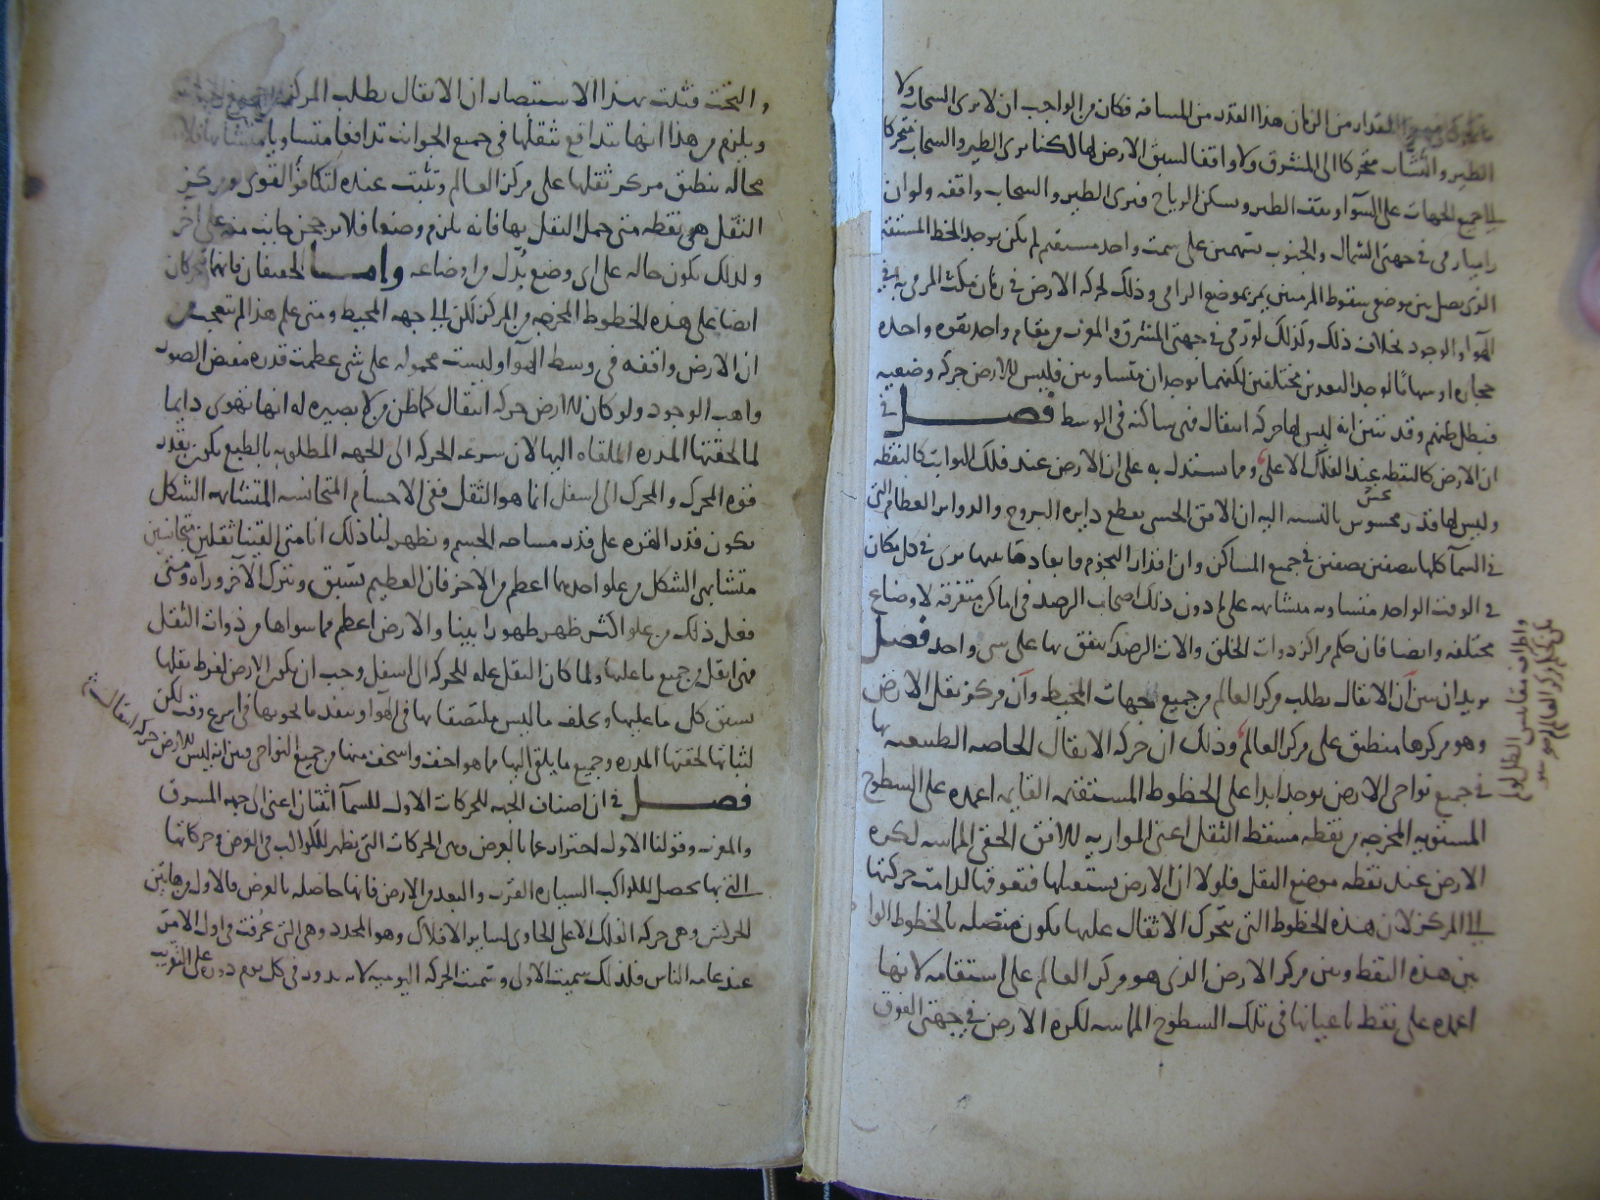 المقدار من الزمان هذا القدر من المسافه فكان من الواجب ان لا يرى السحاب ولا
الطير والنشاب متحركا الى المشرق ولا واقفا لسبق الارض لها لكنا نرى الطير والسحاب متحركا
الى جميع الجهات على السوآ ويقف الطير وتسكن الرياح فنرى الطير والسحاب واقفه ولو ان
راميا رمى في جهتى الشمال والجنوب بسهمين على سمت واحد مستقيم لم يكن يوجد الخط المستقيم
الذى يصل بين موضعى سقوط المرميين يمر بموضع الرامى وذلك لحركة الارض في زمان مكث المرمى به في
الهوآ والوجود بخلاف ذلك وكذلك لو رمى في جهتى المشرق والمغرب من مقام واحد بقوه واحده
حجاره او سهامًا لوجد البعدين مختلفين لكنهما يوجدان متساويين فليس للارض حركه وضعيه
فبطل ظنهم وقد تبين انه ليس لها حركه انتقال فهى ساكنه في الوسط فصل في
ان الارض كالنقطه عند الفلك الاعلى ومما يستدل به على ان الارض عند فلك الثوابت كالنقطه
وليس لها قدر محسوس بالنسبه اليه ان الافق الحسى يقطع دايره البروج والدواير العظام التى
في السمآ كلها بنصفين نصفين في جميع المساكن وان اقدار النجوم وابعادها بينها ترى في كل مكان
في الوقت الواحد متساويه متشابهه على ما دون ذلك اصحاب الرصد في اماكن متفرقه لاوضاع
مختلفه وايضا فان حكم مراكز ذوات الحلق والات الرصد يتفق بها على شى واحد فصل
نريد ان نبين ان الاثقال تطلب مركز العالم من جميع جهات المحيط وان مركز ثقل الارض
وهو مركزها منطبق على مركز العالم وذلك ان حركه الاثقال الخاصه الطبيعيه بها
في جميع نواحى الارض توجد ابدا على الخطوط المستقيمه القايمه اعمده على السطوح
المستويه المخرجه من نقطه مسقط الثقل اعنى الموازيه للافق الحقى المماسه لكره
الارض عند نقطه موضع الثقل فلولا ان الارض يستقبلها فتعوقها لدامت حركتها
الى المركز لان هذه الخطوط التى تتحرك الاثقال عليها يكون متصله بالخطوط الوا
بين هذه النقط وبين مركز الارض الذى هو مركز العالم على استقامه لانها
اعمده على نقط باعيانها في تلك السطوح المماسه لكره الارض في جهتى الفوق
والتحت فثبت بهذا الاستبصار ان الاثقال تطلب المركز
ويلزم من هذا انها تتدافع بثقلها في جميع الجوانب تدافعا متساويا متشابها فلا
محاله ينطبق مركز ثقلها على مركز العالم وتثبت عنده لتكافؤ القوى ومركز
الثقل هو نقطه متى حمل الثقل بها فانه يلزم وضعا فلا يرجحن جانب منه على آخر
ولذلك يكون حاله على اى وضع بُدل من اوضاعه وامــا الخفيفان فانهما يتحركان
ايضا على هذه الخطوط المخرجه من المركز لكن الى جهه المحيط ومتى علم هذا لم يتعجب من
ان الارض واقفه في وسط الهوآ وليست محموله على شى عظمت قدره مفيض الصور
واهب الوجود ولو كان للارض حركه انتقال كما ظن من لا بصيره له انها تهوى دايما
لما لحقتها المدره الملقاه اليها لان سرعه الحركه الى الجهه المطلوبه بالطبع يكون بقدر
قوه المحرك والمحرك الى اسفل انما هو الثقل ففى الاجسام المتجانسه المتشابهه الشكل
يكون قدر القوه على قدر مساحه الجسم ويظهر لنا ذلك انا متى القينا ثقلين متجانسين
متشابهى الشكل من علو احدهما اعظم من الاخر فان العظيم يسبق ويترك الآخر ورآه ومتى
فعل ذلك من علو اكثر ظهر ظهورا بينا والارض اعظم مما سواها من ذوات الثقل
فهى اثقل من جميع ما عليها ولما كان الثقل عله للحركه الى اسفل وجب ان يكون الارض لفرط ثقلها
يسبق كل ما عليها ويخلف ما ليس ملتصقا بها في الهوآ وينفد ما نحوها في اسرع وقت لكن
لثباتها لحقتها المدره وجميع ما يلقى اليها مما هو اخف واسخف منها من جميع النواحى فبين انه ليس للارض حركه انتقال
فصــل في ان اصناف الجهه للحركات الاول للسمآ اثنان اعنى الى جهه المشرق
والمغرب وقولنا الاول احتراز عما بالعرض وهى الحركات التى يظهر للكواكب في العرض في حركاتها
التى بها يحصل للكواكب السياره القرب والبعد من الارض فانها حاصله بالعرض فالاولى من هاتين
الحركتين وهى حركه الفلك الاعلى الحاوى لساير الافلاك وهو المحدد وهى التى عُرفت في اول الامر
عند عامه الناس فلذلك سميت الاولى وسميت الحركه اليوميه لانه يدور في كل يوم دوره على التقريب